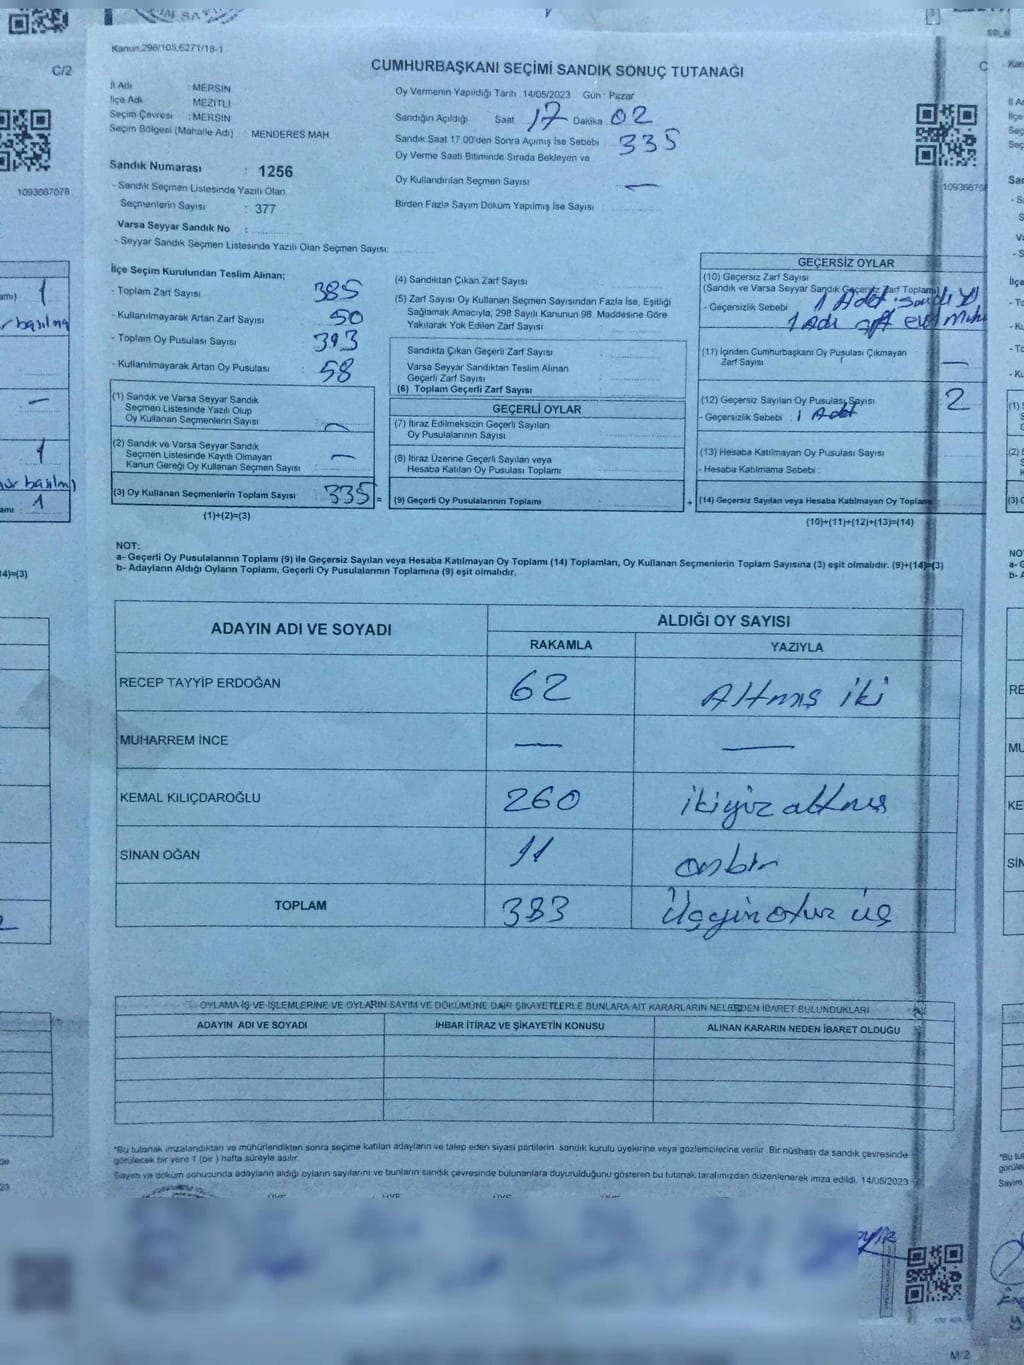 Kanun,298/105,6271/18-1
C/2
CUMHURBAŞKANI SEÇİMİ SANDIK SONUÇ TUTANAĞI
İl Adı : MERSİN
İlçe Adı MEZİTLİ
Seçim Çevresi :MERSİN
Seçim Bölgesi (Mahalle Adı) : MENDERES MAH.
Oy Vermenin Yapıldığı Tarih :14/05/2023 Gün : Pazar
Sandığın Açıldığı Saat 17 Dakika 02
Sandık Saat 17.00'den Sonra Açımış İse Sebebi 335
Oy Verme Saati Bitiminde Sırada Bekleyen ve
Oy Kullandırılan Seçmen Sayısı —
Birden Fazla Sayım Döküm Yapılmış İse Sayısı :
1093667078
Sandık Numarası : 1256
- Sandık Seçmen Listesinde Yazılı Olan
Seçmenlerin Sayısı : 377
Varsa Seyyar Sandık No :
- Seyyar Sandık Seçmen Listesinde Yazılı Olan Seçmen Sayısı:
İlçe Seçim Kurulundan Teslim Alınan;
- Toplam Zarf Sayısı 385
- Kullanılmayarak Artan Zarf Sayısı 50
- Toplam Oy Pusulası Sayısı 393
- Kullanılmayarak Artan Oy Pusulası 58
(1) Sandık ve Varsa Seyyar Sandık
Seçmen Listesinde Yazılı Olup
Oy Kullanan Seçmenlerin Sayısı —
(2) Sandık ve Varsa Seyyar Sandık
Seçmen Listesinde Kayıtlı Olmayan
Kanun Gereği Oy Kullanan Seçmen Sayısı : —
(3) Oy Kullanan Seçmenlerin Toplam Sayısı 335 =
(1)+(2)=(3)
(4) Sandıktan Çıkan Zarf Sayısı
(5) Zarf Sayısı Oy Kullanan Seçmen Sayısından Fazla İse, Eşitliği
Sağlamak Amacıyla, 298 Sayılı Kanunun 98. Maddesine Göre
Yakılarak Yok Edilen Zarf Sayısı
Sandıkta Çıkan Geçerli Zarf Sayısı :
Varsa Seyyar Sandıktan Teslim Alınan
Geçerli Zarf Sayısı
(6) Toplam Geçerli Zarf Sayısı
GEÇERLİ OYLAR
(7) İtiraz Edilmeksizin Geçerli Sayılan
Oy Pusulalarının Sayısı
(8) İtiraz Üzerine Geçerli Sayılan veya
Hesaba Katılan Oy Pusulası Toplamı
(9) Geçerli Oy Pusulalarının Toplamı +
GEÇERSİZ OYLAR
(10) Geçersiz Zarf Sayısı
(Sandık ve Varsa Seyyar Sandık Geçersiz Zarf Toplamı)
- Geçersizlik Sebebi : 1 Adet
(11) İçinden Cumhurbaşkanı Oy Pusulası Çıkmayan
Zarf Sayısı —
(12) Geçersiz Sayılan Oy Pusulası Sayısı 2
- Geçersizlik Sebebi : 1 Adet
(13) Hesaba Katılmayan Oy Pusulası Sayısı
- Hesaba Katılmama Sebebi :
(14) Geçersiz Sayılan veya Hesaba Katılmayan Oy Toplamı
(10)+(11)+(12)+(13)=(14)
NOT:
a- Geçerli Oy Pusulalarının Toplamı (9) ile Geçersiz Sayılan veya Hesaba Katılmayan Oy Toplamı (14) Toplamları, Oy Kullanan Seçmenlerin Toplam Sayısına (3) eşit olmalıdır. (9)+(14)=(3)
b- Adayların Aldığı Oyların Toplamı, Geçerli Oy Pusulalarının Toplamına (9) eşit olmalıdır.
ADAYIN ADI VE SOYADI ALDIĞI OY SAYISI
RAKAMLA YAZIYLA
RECEP TAYYİP ERDOĞAN 62 Altmış iki
MUHARREM İNCE — —
KEMAL KILIÇDAROĞLU 260 ikiyüz altmış
SİNAN OĞAN 11 onbir
TOPLAM 333 Üçyüz otuz üç
OYLAMA İŞ VE İŞLEMLERİNE VE OYLARIN SAYIM VE DÖKÜMÜNE DAİR ŞİKAYETLERLE BUNLARA AİT KARARLARIN NELERDEN İBARET BULUNDUKLARI
ADAYIN ADI VE SOYADI İHBAR İTİRAZ VE ŞİKAYETİN KONUSU ALINAN KARARIN NEDEN İBARET OLDUĞU
*Bu tutanak imzalandıktan ve mühürlendikten sonra seçime katılan adayların ve talep eden siyasi partilerin sandık kurulu üyelerine veya gözlemcilerine verilir. Bir nüshası da sandık çevresinde
görülecek bir yere 1 (bir ) hafta süreyle asılır.
Sayım ve döküm sonucunda adayların aldığı oyların sayılarını ve bunların sandık çevresinde bulunanlara duyurulduğunu gösteren bu tutanak tarafımızdan düzenlenerek imza edildi. 14/05/2023
ÜYE ÜYE ÜYE ÜYE
M/2